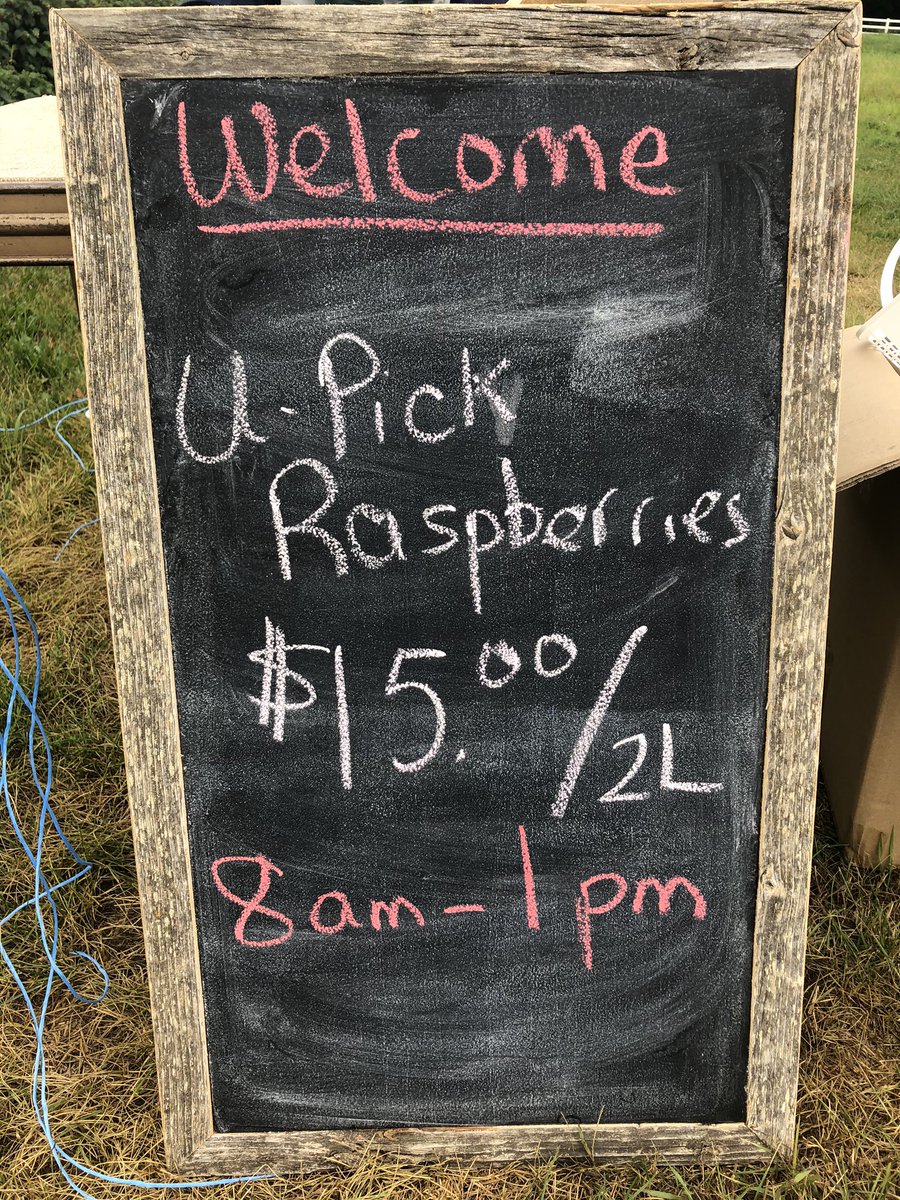 Welcome
U-Pick
Raspberries
$15.00/2L
8am-1pm